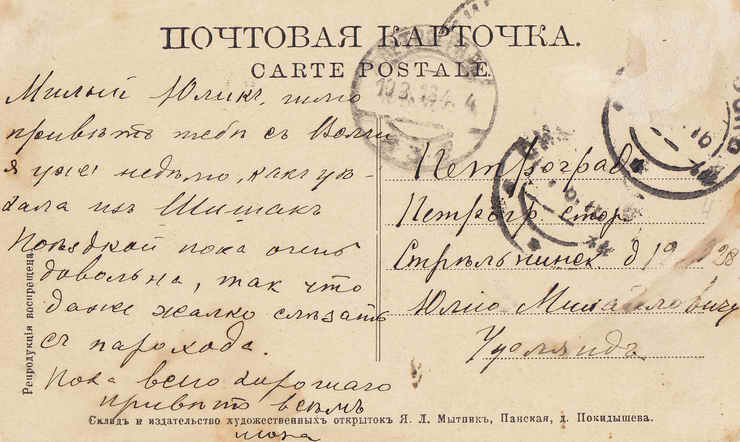 ПОЧТОВАЯ КАРТОЧКА.
CARTE POSTALE
Милый Юликъ, шлю
привѣтъ тебѣ съ Волги
я уже недѣлю, какъ уѣ-
хала изъ Шишакъ
Поѣздкой пока очень
довольна, такъ что
даже жалко слѣзать
съ парохода.
Пока всего хорошаго
привѣтъ всѣмъ
Петроградъ
Петрогр стор
д 19 28
Юлію Михайловичу
Репродукція воспрещена.
Складъ и издательство художественныхъ открытокъ Я. Л. Мытникъ, Панская, д. Покидышева.